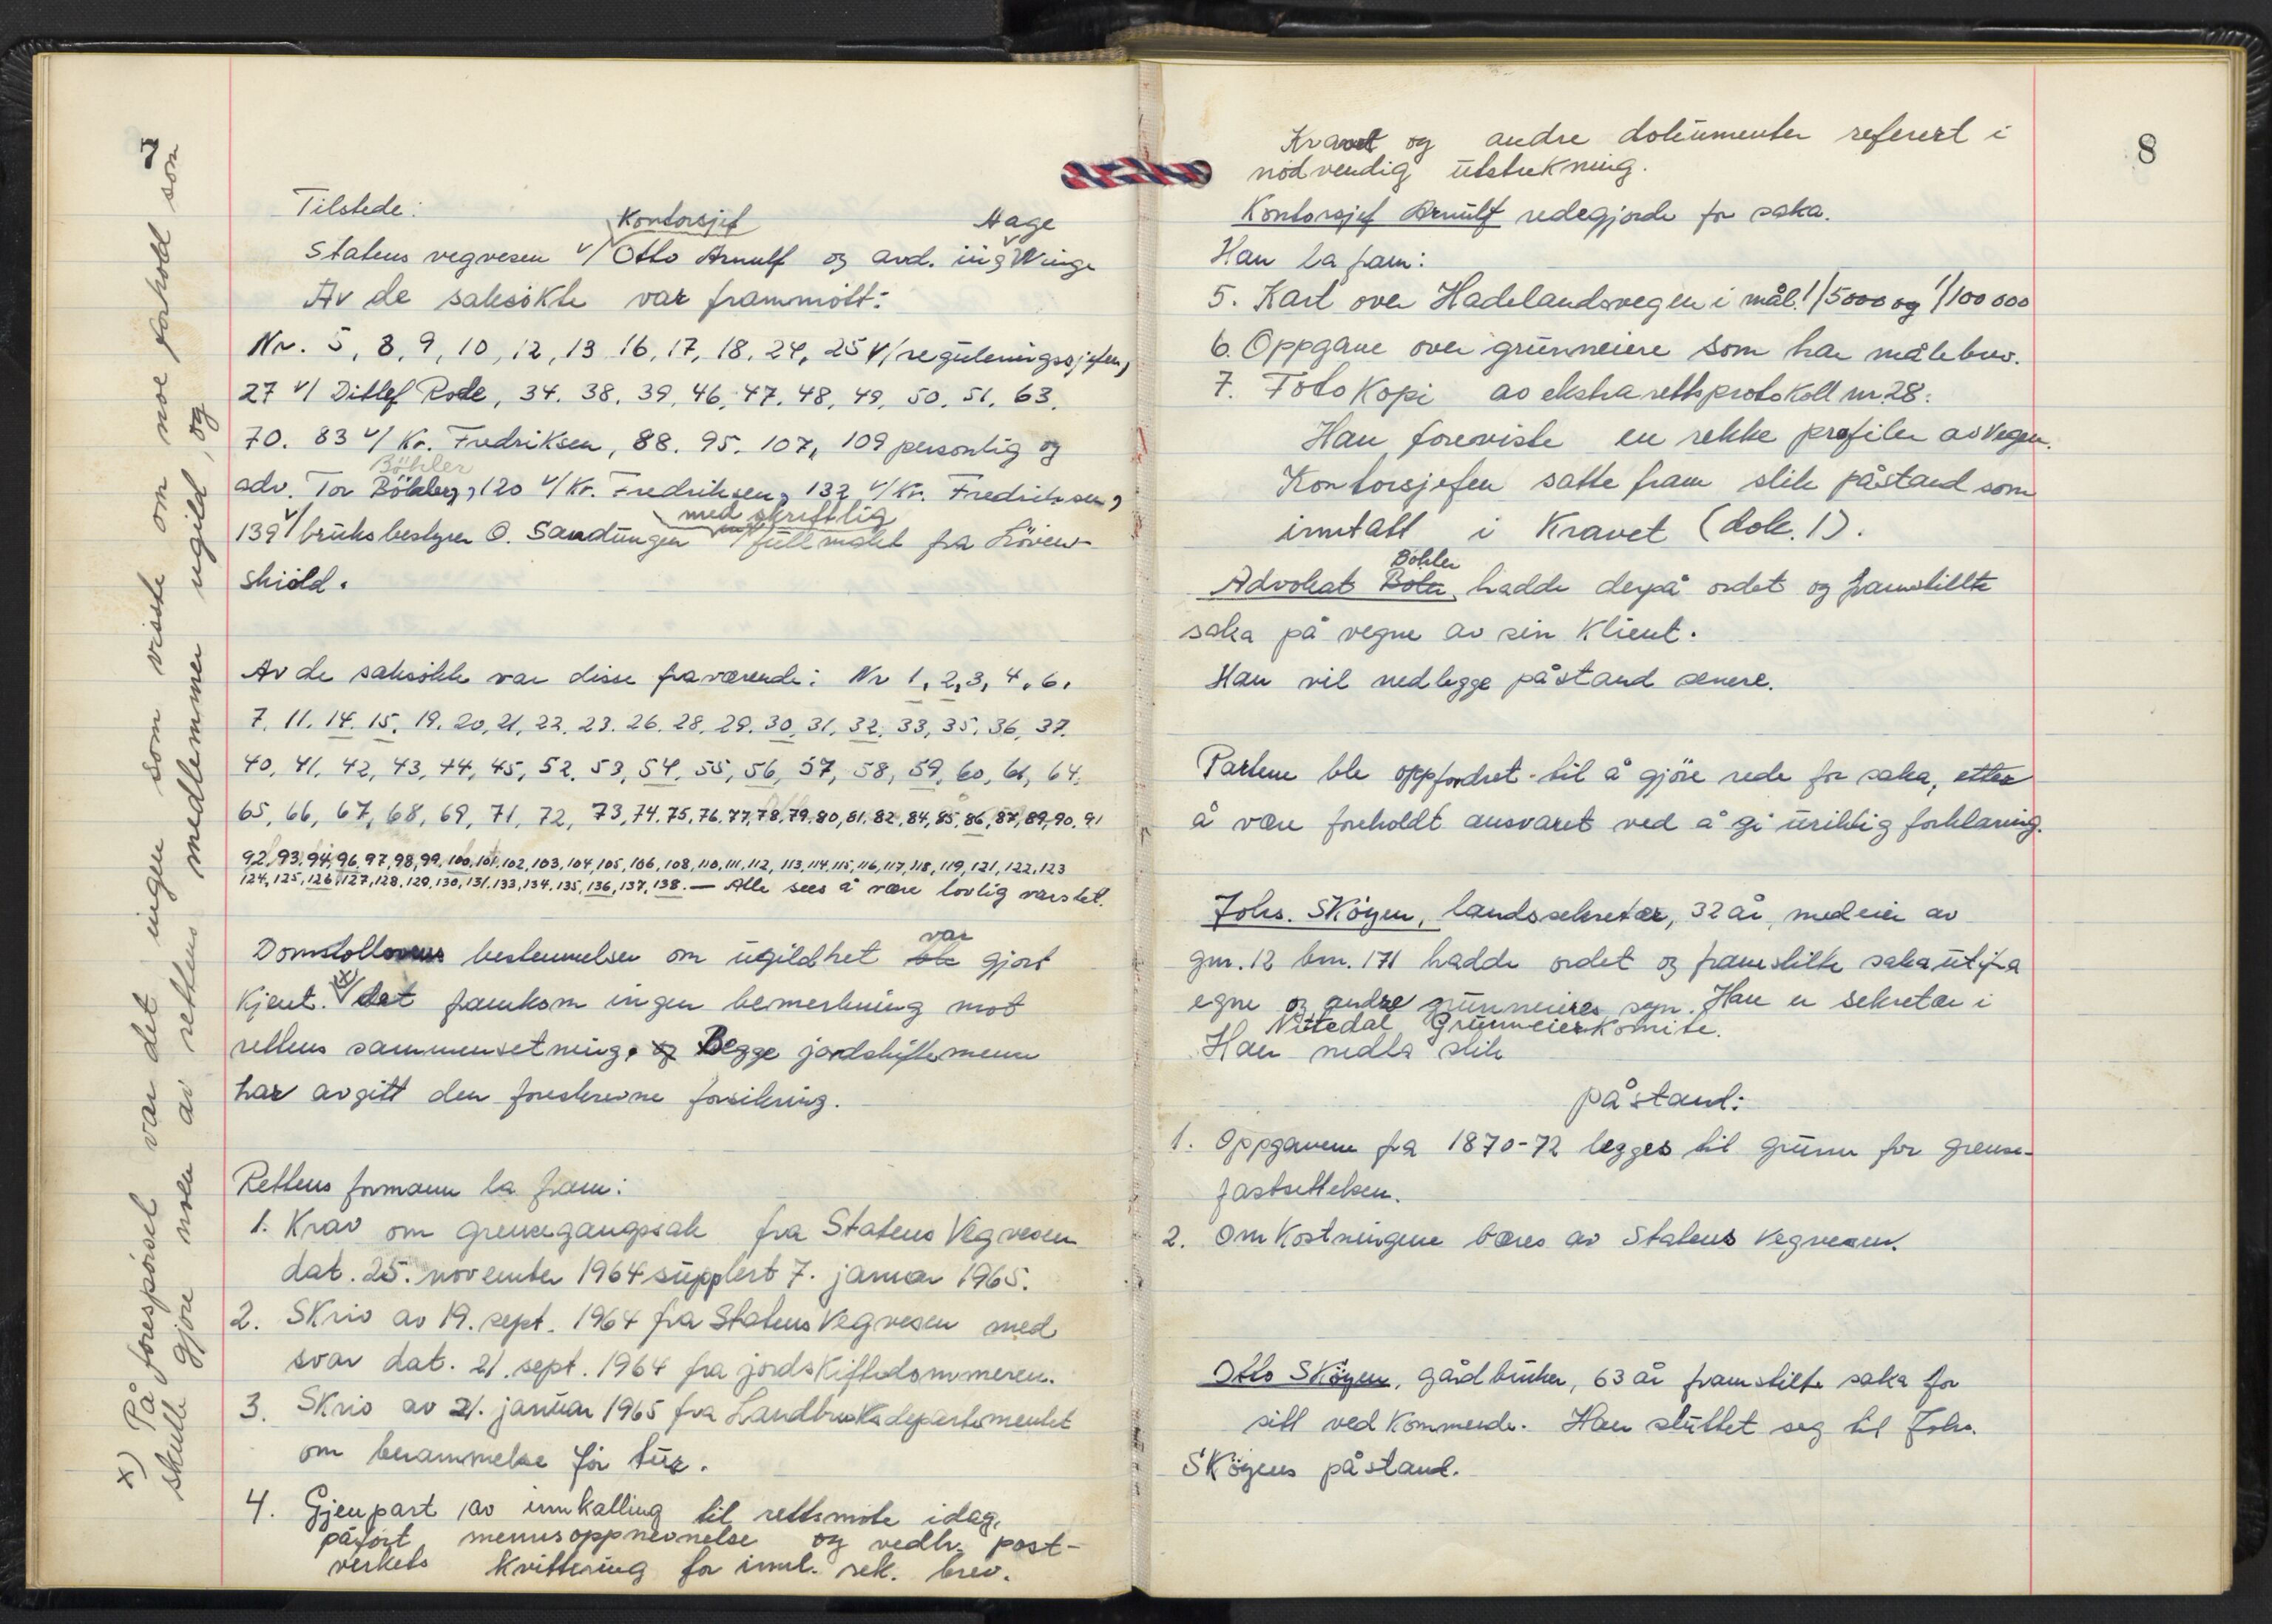 7
Tilstede:
Kontorsjef Hage
Statens vegvesen v/ Otto Arnulf og avd. ing Winge
Av de saksökte var frammött:
Nr. 5, 8, 9, 10, 12, 13 16, 17, 18, 24, 25 v/reguleringssjefen,
27 v/ Ditlef Rode, 34. 38. 39, 46, 47. 48, 49, 50. 51. 63.
70. 83 v/ Kr. Fredriksen, 88. 95. 107, 109 personlig og
Böhler
adv. Tor 120 v/ Kr. Fredriksen, 132 v/ Kr. Fredriksen,
med skriftlig
139 v/ bruksbestyrer O. Sandungen fullmakt fra Löven-
skiöld.
Av de saksökte var disse fraværende: Nr 1, 2, 3, 4. 6.
7. 11. 14. 15. 19. 20, 21, 22. 23. 26. 28. 29. 30, 31, 32. 33, 35, 36, 37.
40, 41, 42, 43, 44, 45, 52, 53, 54, 55, 56, 57, 58, 59, 60, 61, 64.
65, 66, 67, 68, 69, 71, 72, 73, 74, 75, 76, 77, 78, 79, 80, 81, 82, 84, 85, 86, 87, 89, 90, 91
92, 93, 94, 96, 97, 98, 99, 100, 101, 102, 103, 104, 105, 106, 108, 110, 111, 112, 113, 114, 115, 116, 117, 118, 119, 121, 122, 123
124, 125, 126, 127, 128, 129, 130, 131, 133, 134, 135, 136, 137, 138. — Alle sees å være lovlig varslet.
var
Domstollovens bestemmelser om ugildhet ble gjort
kjent. x) det framkom ingen bemerkning mot
rettens sammensetning. og Begge jordskiftemenn
har avgitt den foreskrevne forsikring.
Rettens formann la fram:
1. Krav om grensegangssak fra Statens Vegvesen
dat. 25. november 1964 supplert 7. januar 1965.
2. Skriv av 19. sept. 1964 fra Statens Vegvesen med
svar dat. 21. sept. 1964 fra jordskiftedommeren.
3. Skriv av 21. januar 1965 fra Landbruksdepartementet
om berammelse för tur.
4. Gjenpart av innkalling til rettsmöte idag,
påfört mennsoppnevnelse og vedh. post-
verkets kvittering for innl. rek. brev.
x) På forespörsel var det ingen som visste om noe forhold som
skulle gjöre noen av rettens medlemmer ugild, og
8
Kravet og andre dokumenter referert i
nödvendig utstrekning.
Kontorsjef Arnulf redegjorde for saka.
Han la fram:
5. Kart over Hadelandsvegen i mål. 1/5000 og 1/100 000
6. Oppgave over grunneiere som har målebrev.
7. Fotokopi av ekstrarettsprotokoll nr. 28.
Han foreviste en rekke profiler av vegen.
Kontorsjefen satte fram slik påstand som
inntatt i Kravet (dok. 1).
Böhler
Advokat hadde derpå ordet og framstillte
saka på vegne av sin klient.
Han vil nedlegge påstand senere.
Partene ble oppfordret til å gjöre rede for saka, etter
å være foreholdt ansvaret ved å gi uriktig forklaring.
Johs. Sköyen, landssekretær, 32 år, medeier av
gnr. 12 bnr. 171 hadde ordet og framstilte saka ut fra
egne og andre grunneieres syn. Han er sekretær i
Nittedal Grunneierkomite.
Han nedla slik
påstand:
1. Oppgavene fra 1870-72 legges til grunn for grense-
fastsettelsen.
2. Omkostningene bæres av Statens Vegvesen.
Otto Sköyen, gårdbruker, 63 år framstilte saka for
sitt vedkommende. Han sluttet seg til Johs.
Sköyens påstand.